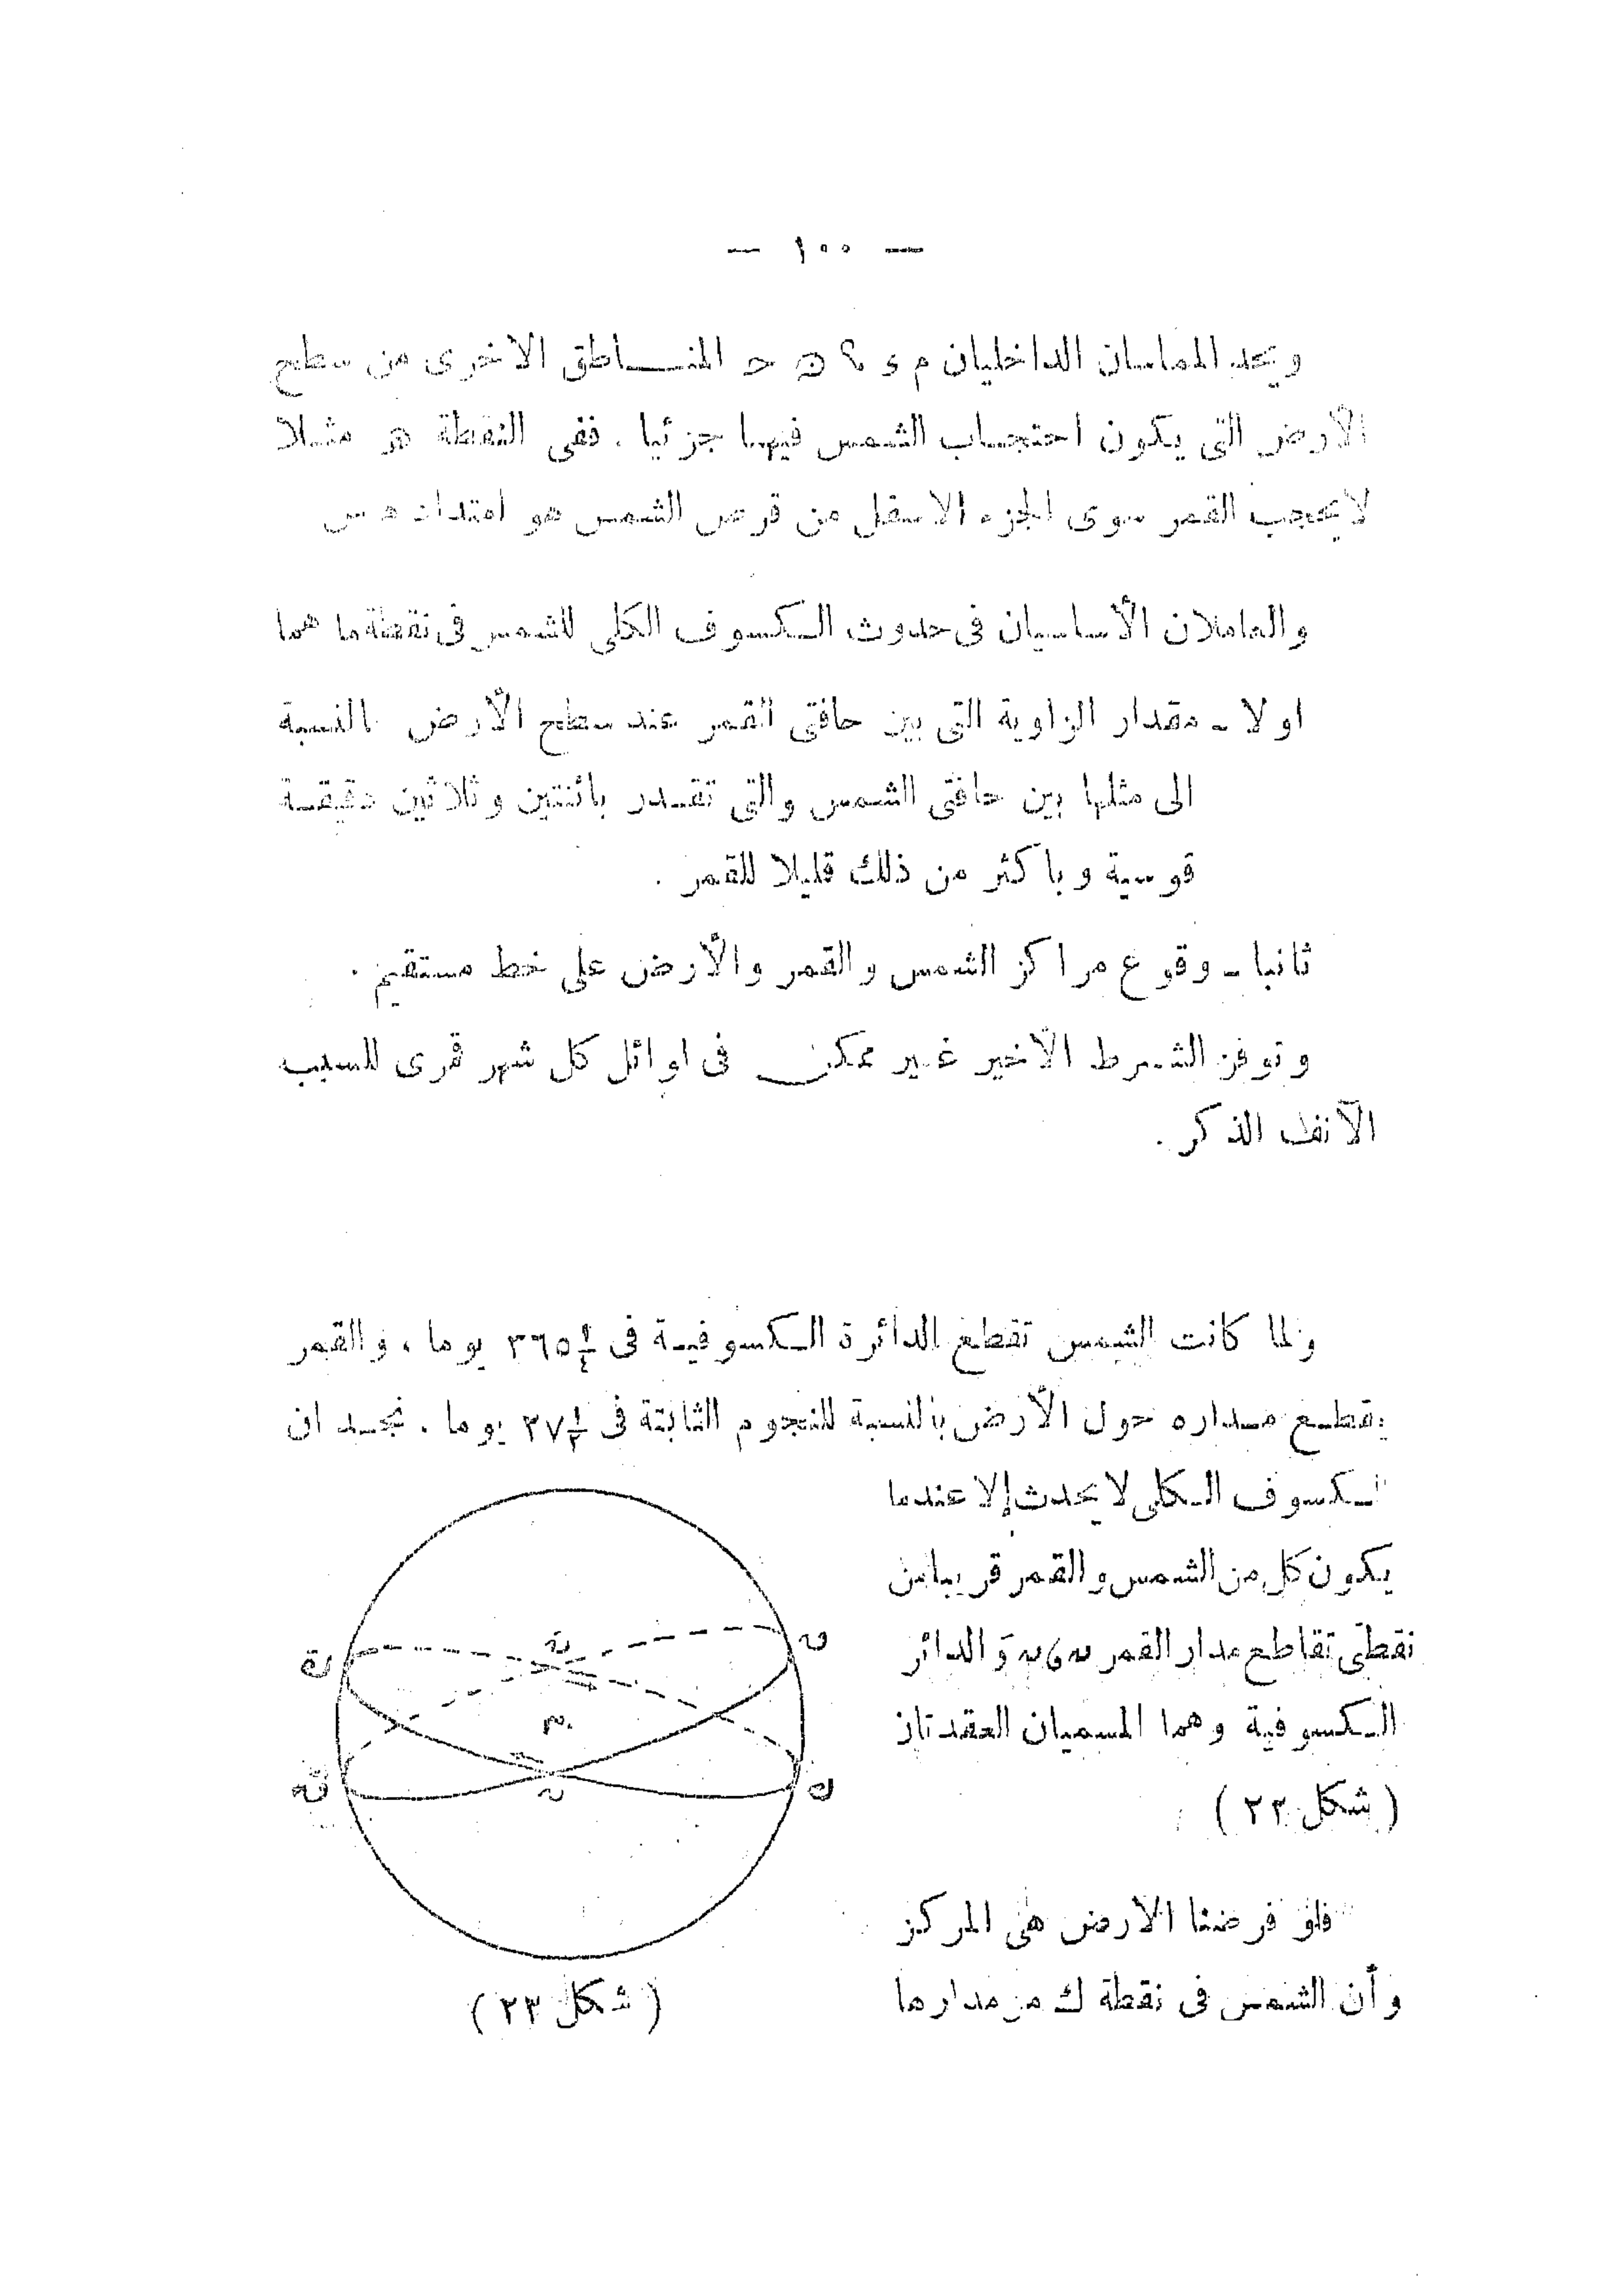 — ١٠٠ —
ويحد المماسان الداخليان م د ، ن ح المناطق الاخرى من سطح
الأرض التى يكون احتجاب الشمس فيها جزئيا . ففى النقطة هـ مثلا
لا يحجب القمر سوى الجزء الاسفل من قرص الشمس هو امتداد هـ س
والعاملان الأساسيان فى حدوث الكسوف الكلى للشمس فى نقطة ما هما
اولا ــ مقدار الزاوية التى بين حافتى القمر عند سطح الأرض بالنسبة
الى مثلها بين حافتى الشمس والتى تقدر باثنتين وثلاثين دقيقة
قوسية وباكثر من ذلك قليلا للقمر .
ثانيا ــ وقوع مراكز الشمس والقمر والأرض على خط مستقيم .
وتوفر الشرط الأخير غير ممكن فى اوائل كل شهر قمرى للسبب
الآنف الذكر .
ولما كانت الشمس تقطع الدائرة الكسوفية فى ٣٦٥ ١/٤ يوما ، والقمر
يقطع مداره حول الأرض بالنسبة للنجوم الثابتة فى ٢٧ ١/٣ يوما . نجد ان
الكسوف الكلى لا يحدث إلا عندما
يكون كل من الشمس والقمر قريبا من
نقطتى تقاطع مدار القمر والدائر
الكسوفية وهما المسميان العقدتان
( شكل ٢٣ )
فلو فرضنا الارض هى المركز
وأن الشمس فى نقطة ك من مدارها
( شكل ٢٣ )